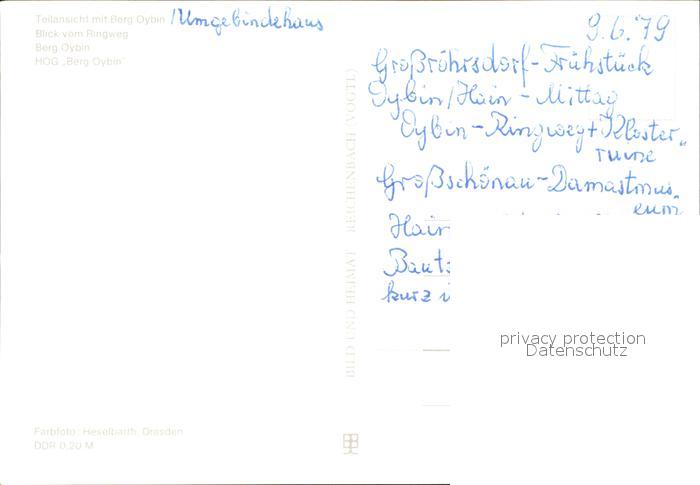 Teilansicht mit Berg Oybin /Umgebindehaus
Blick vom Ringweg
Berg Oybin
HOG „Berg Oybin"
9.6.'79
Großröhrsdorf-Frühstück
Oybin/Hain - Mittag
Oybin-Ringweg+Kloster-
ruine
Großschönau-Damastmus-
eum
Hain
kurz
BILD UND HEIMAT REICHENBACH (VOGTL)
privacy protection
Datenschutz
Farbfoto: Heselbarth, Dresden
DDR 0,20 M